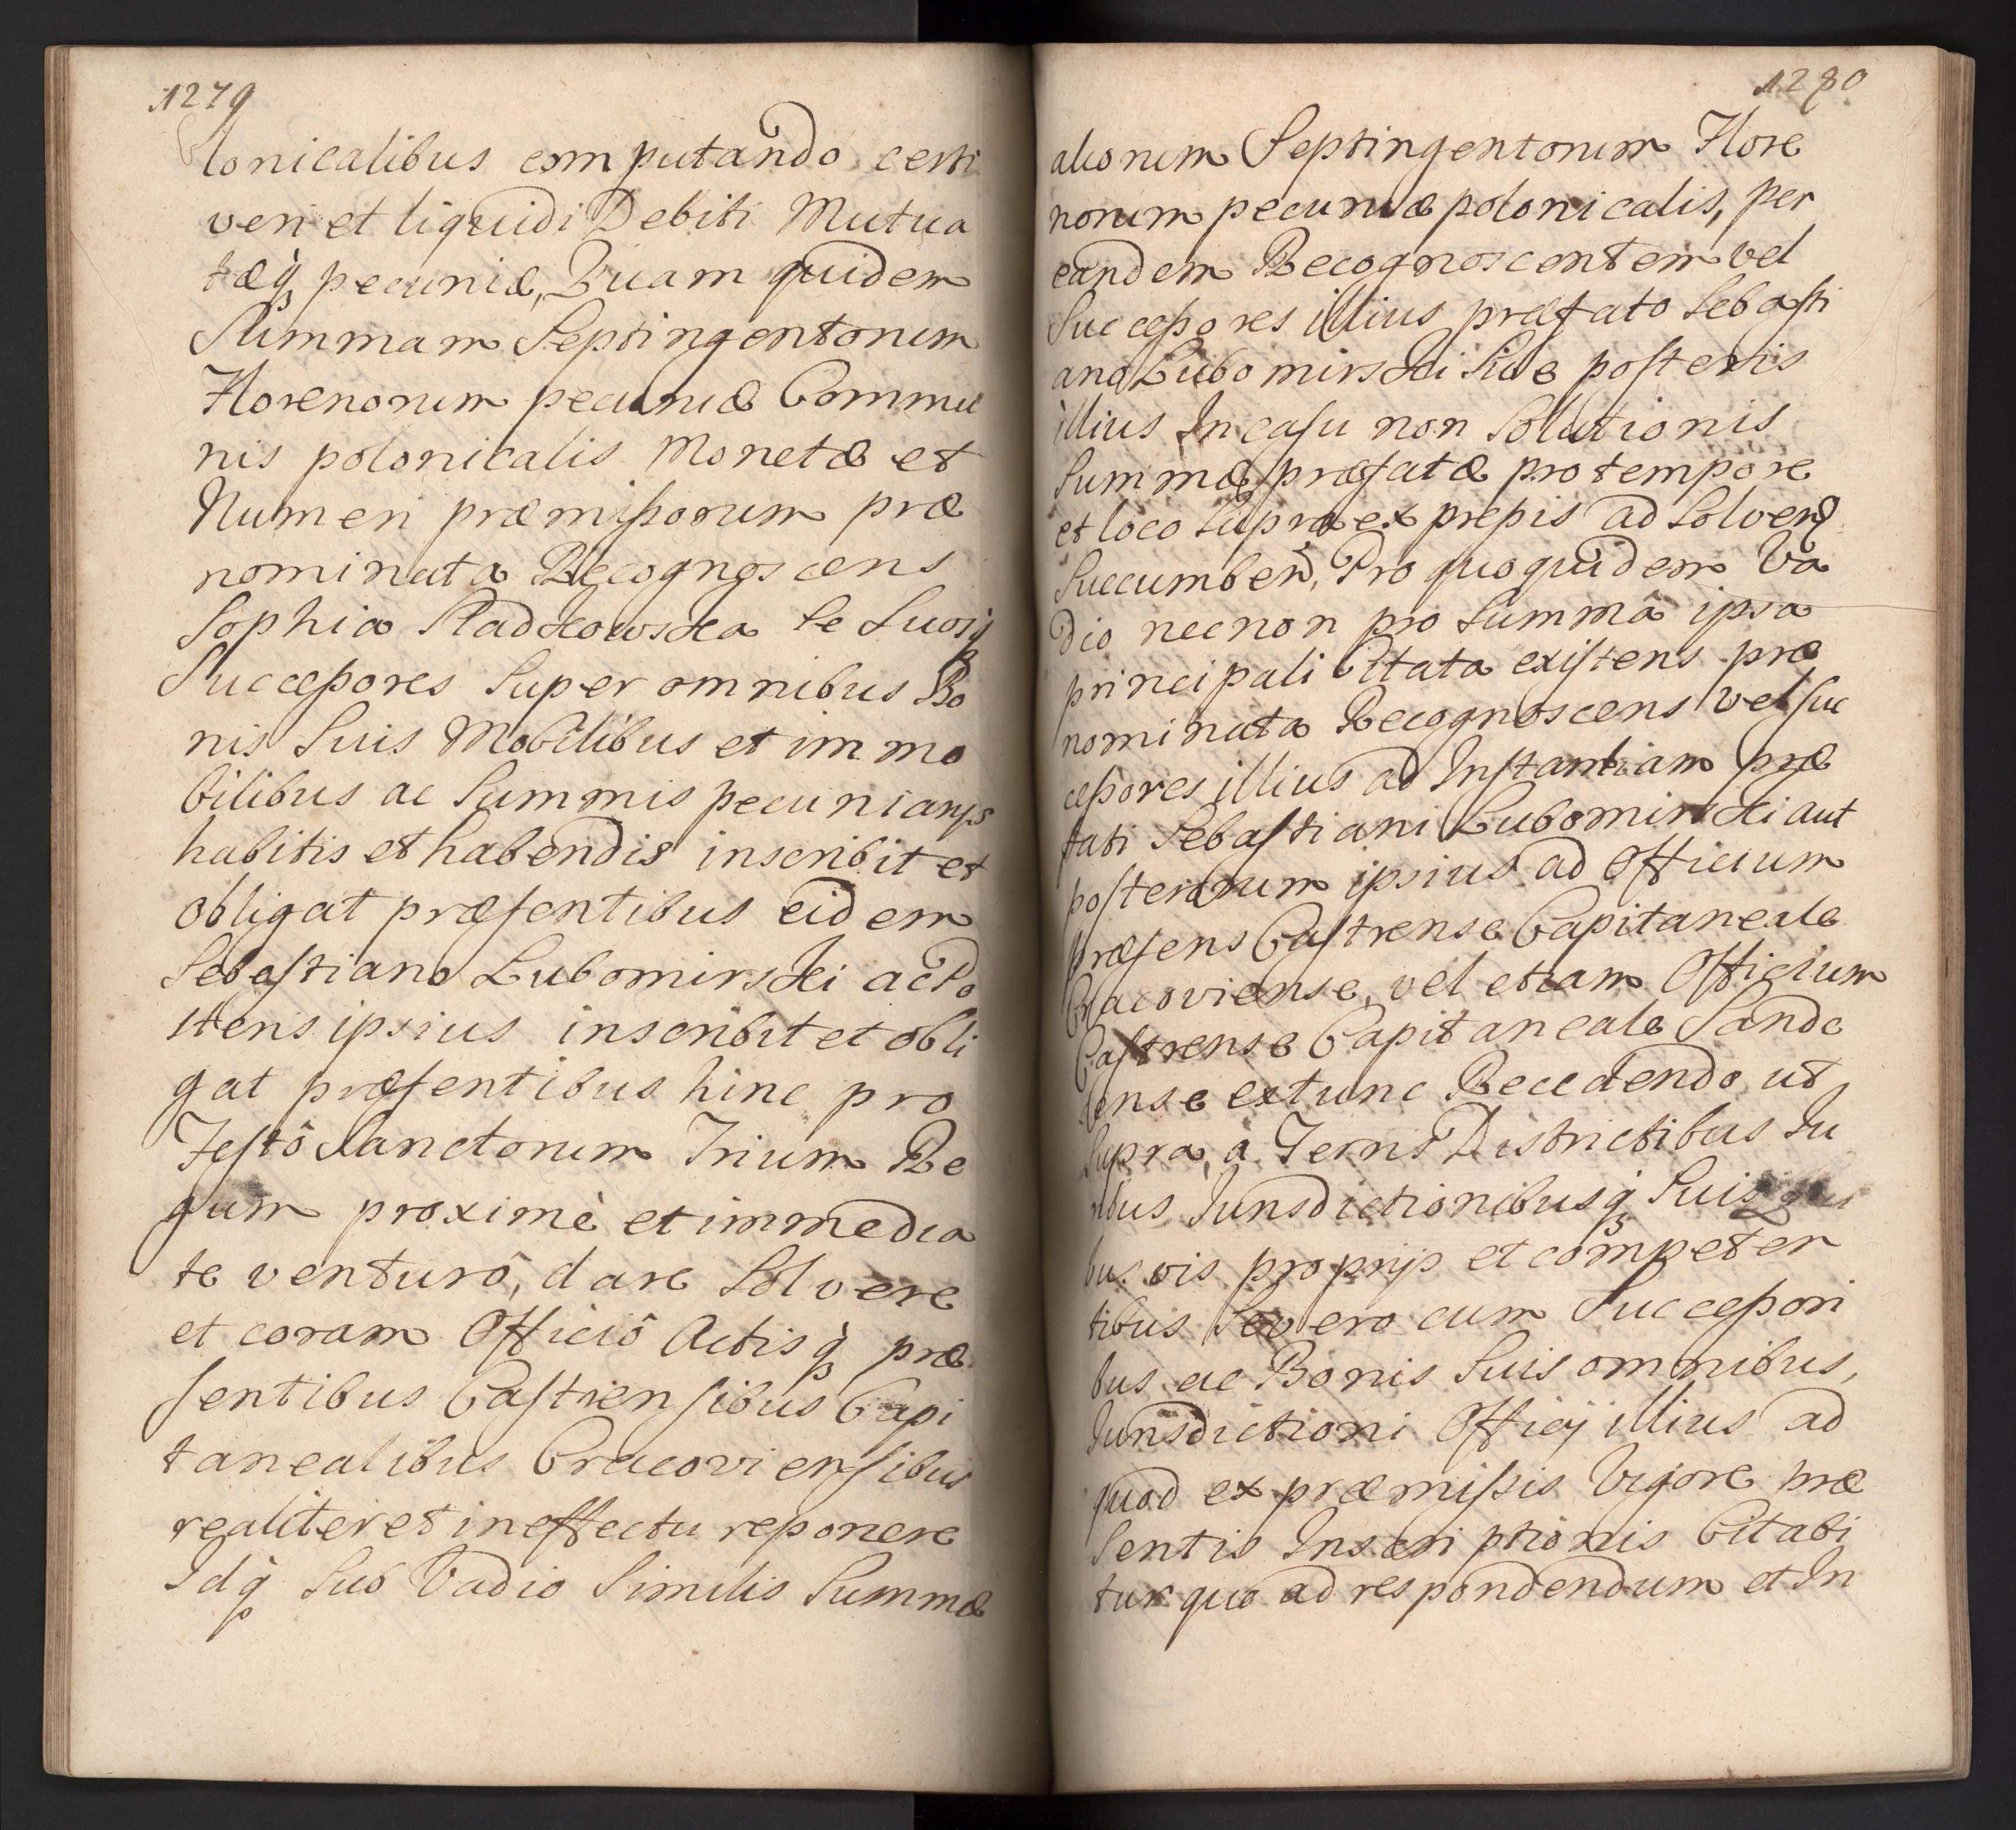 1279
lonicalibus computando certi
veri et liquidi Debiti Mutua
tæq́ pecuniæ, Quam quidem
Summam Septingentorum
Florenorum pecuniæ Commu
nis polonicalis Monetæ et
Numeri præmißorum præ
nominata Recognoscens
Sophia Radkowska se Suosq́
Succeßores Super omnibus Bo
nis Suis Mobilibus et immo
bilibus ac Summis pecuniarijs
habitis et habendis inscribit et
obligat præsentibus eidem
Sebastiano Lubomirski ac Po
steris ipsius inscribit et obli
gat præsentibus hinc pro
Festô Sanctorum Trium Re
gum proximè et immedia
te venturô, dare Solvere
et coram Officiô Actisq́ præ
sentibus Castrensibus Capi
tanealibus Cracoviensibus
realiter et in effectu reponere
Idq́ Sub Vadio Similis Summæ
1280
alionum Septingentorum Flore
norum pecuniæ polonicalis, per
eandem Recognoscentem vel
Succeßores illius præfato Sebasti
ano Lubomirski Sive posteris
illius In casu non Solutionis
Summæ præfatæ pro tempore
et loco supra expreßis ad Solvend
Succumbend, Pro quo quidem Va
dio necnon pro Summâ ipsa
principali Citata existens præ
nominata Recognoscens vel suc
ceßores illius ad Instantiam præ
fati Sebastiani Lubomirski aut
posterorum ipsius ad Officium
præsens Castrense Capitaneale
Cracoviense, vel etiam Officium
Castrense Capitaneale Sande
cense extunc Recedendo ut
supra, à Terris Districtibus Ju
ribus Jurisdictionibusq́ Suis
bus vis proprijs et competen
tibus Se vero cum Succeßori
bus ac Bonis Suis omnibus,
Jurisdictioni Officij illius ad
quod ex præmißis Vigore præ
Sentis Inscriptionis Citabi
tur quo ad respondendum et In